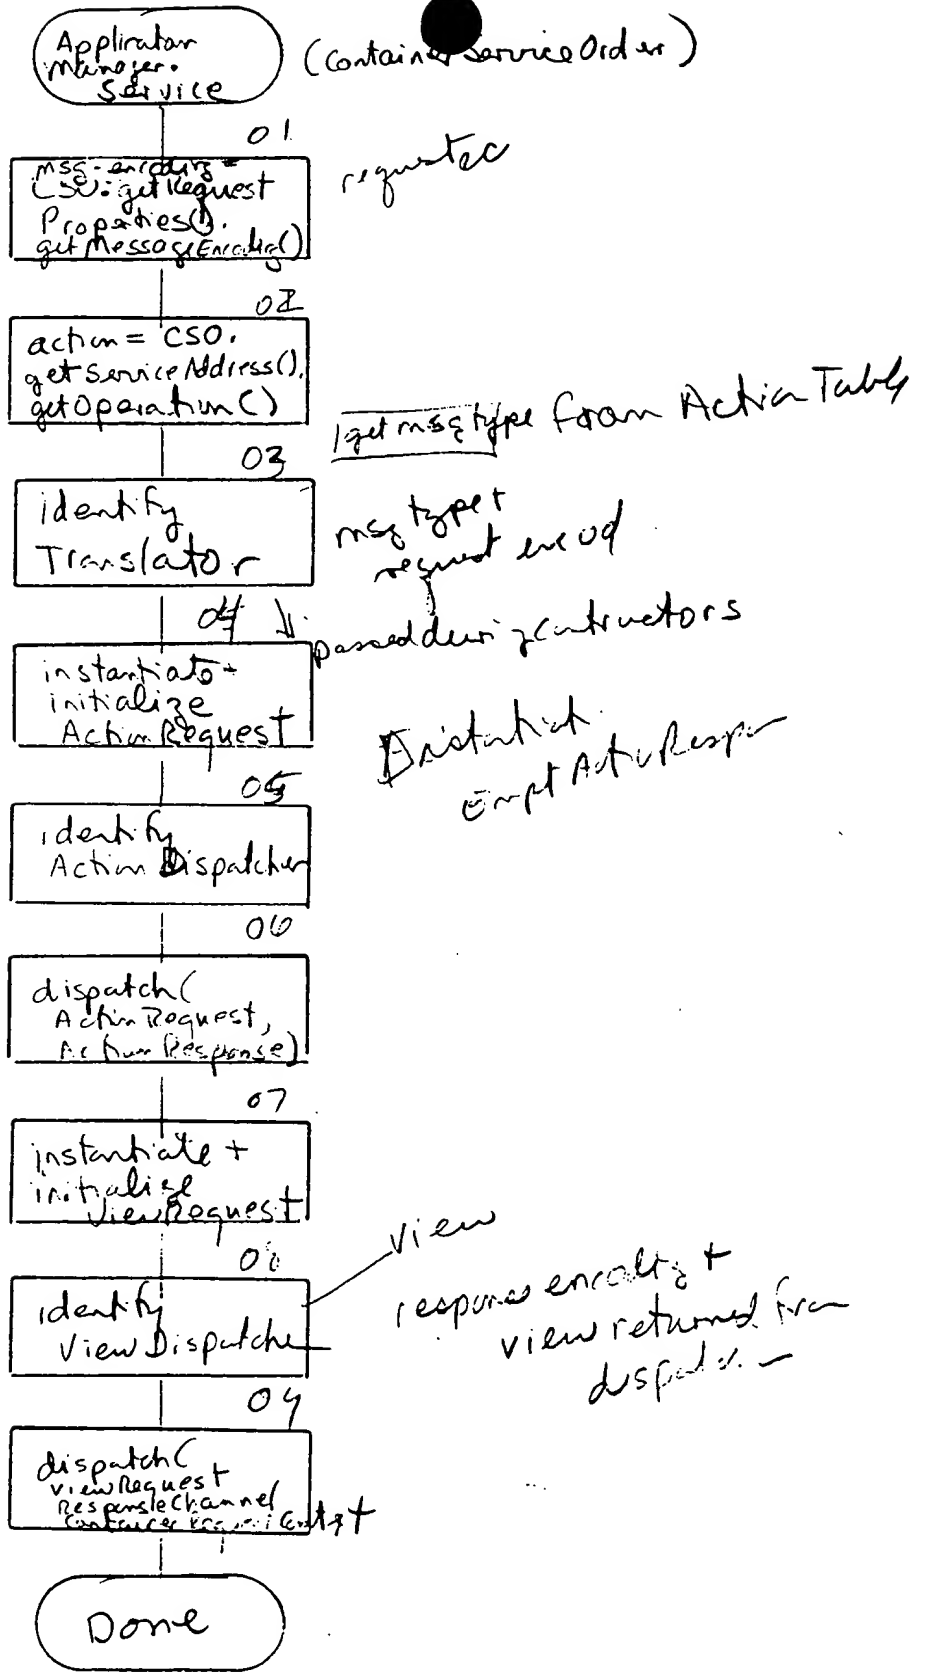 Application
Manager.
Service
(ContainerServiceOrder)
01
msg-encoding =
CSO.getRequest
Properties().
getMessageEncoding()
02
action = CSO.
getServiceAddress().
getOperation()
get msg type from Action Table
03
identify
Translator
msg type +
request encod
04
passed during contructors
instantiate +
initialize
ActionRequest
05
identify
Action Dispatcher
06
dispatch(
ActionRequest,
ActionResponse)
07
instantiate +
initialize
ViewRequest
view
08
identify
View Dispatcher
response encoding +
view returned from
09
dispatch(
viewRequest
ResponseChannel
Container
Done